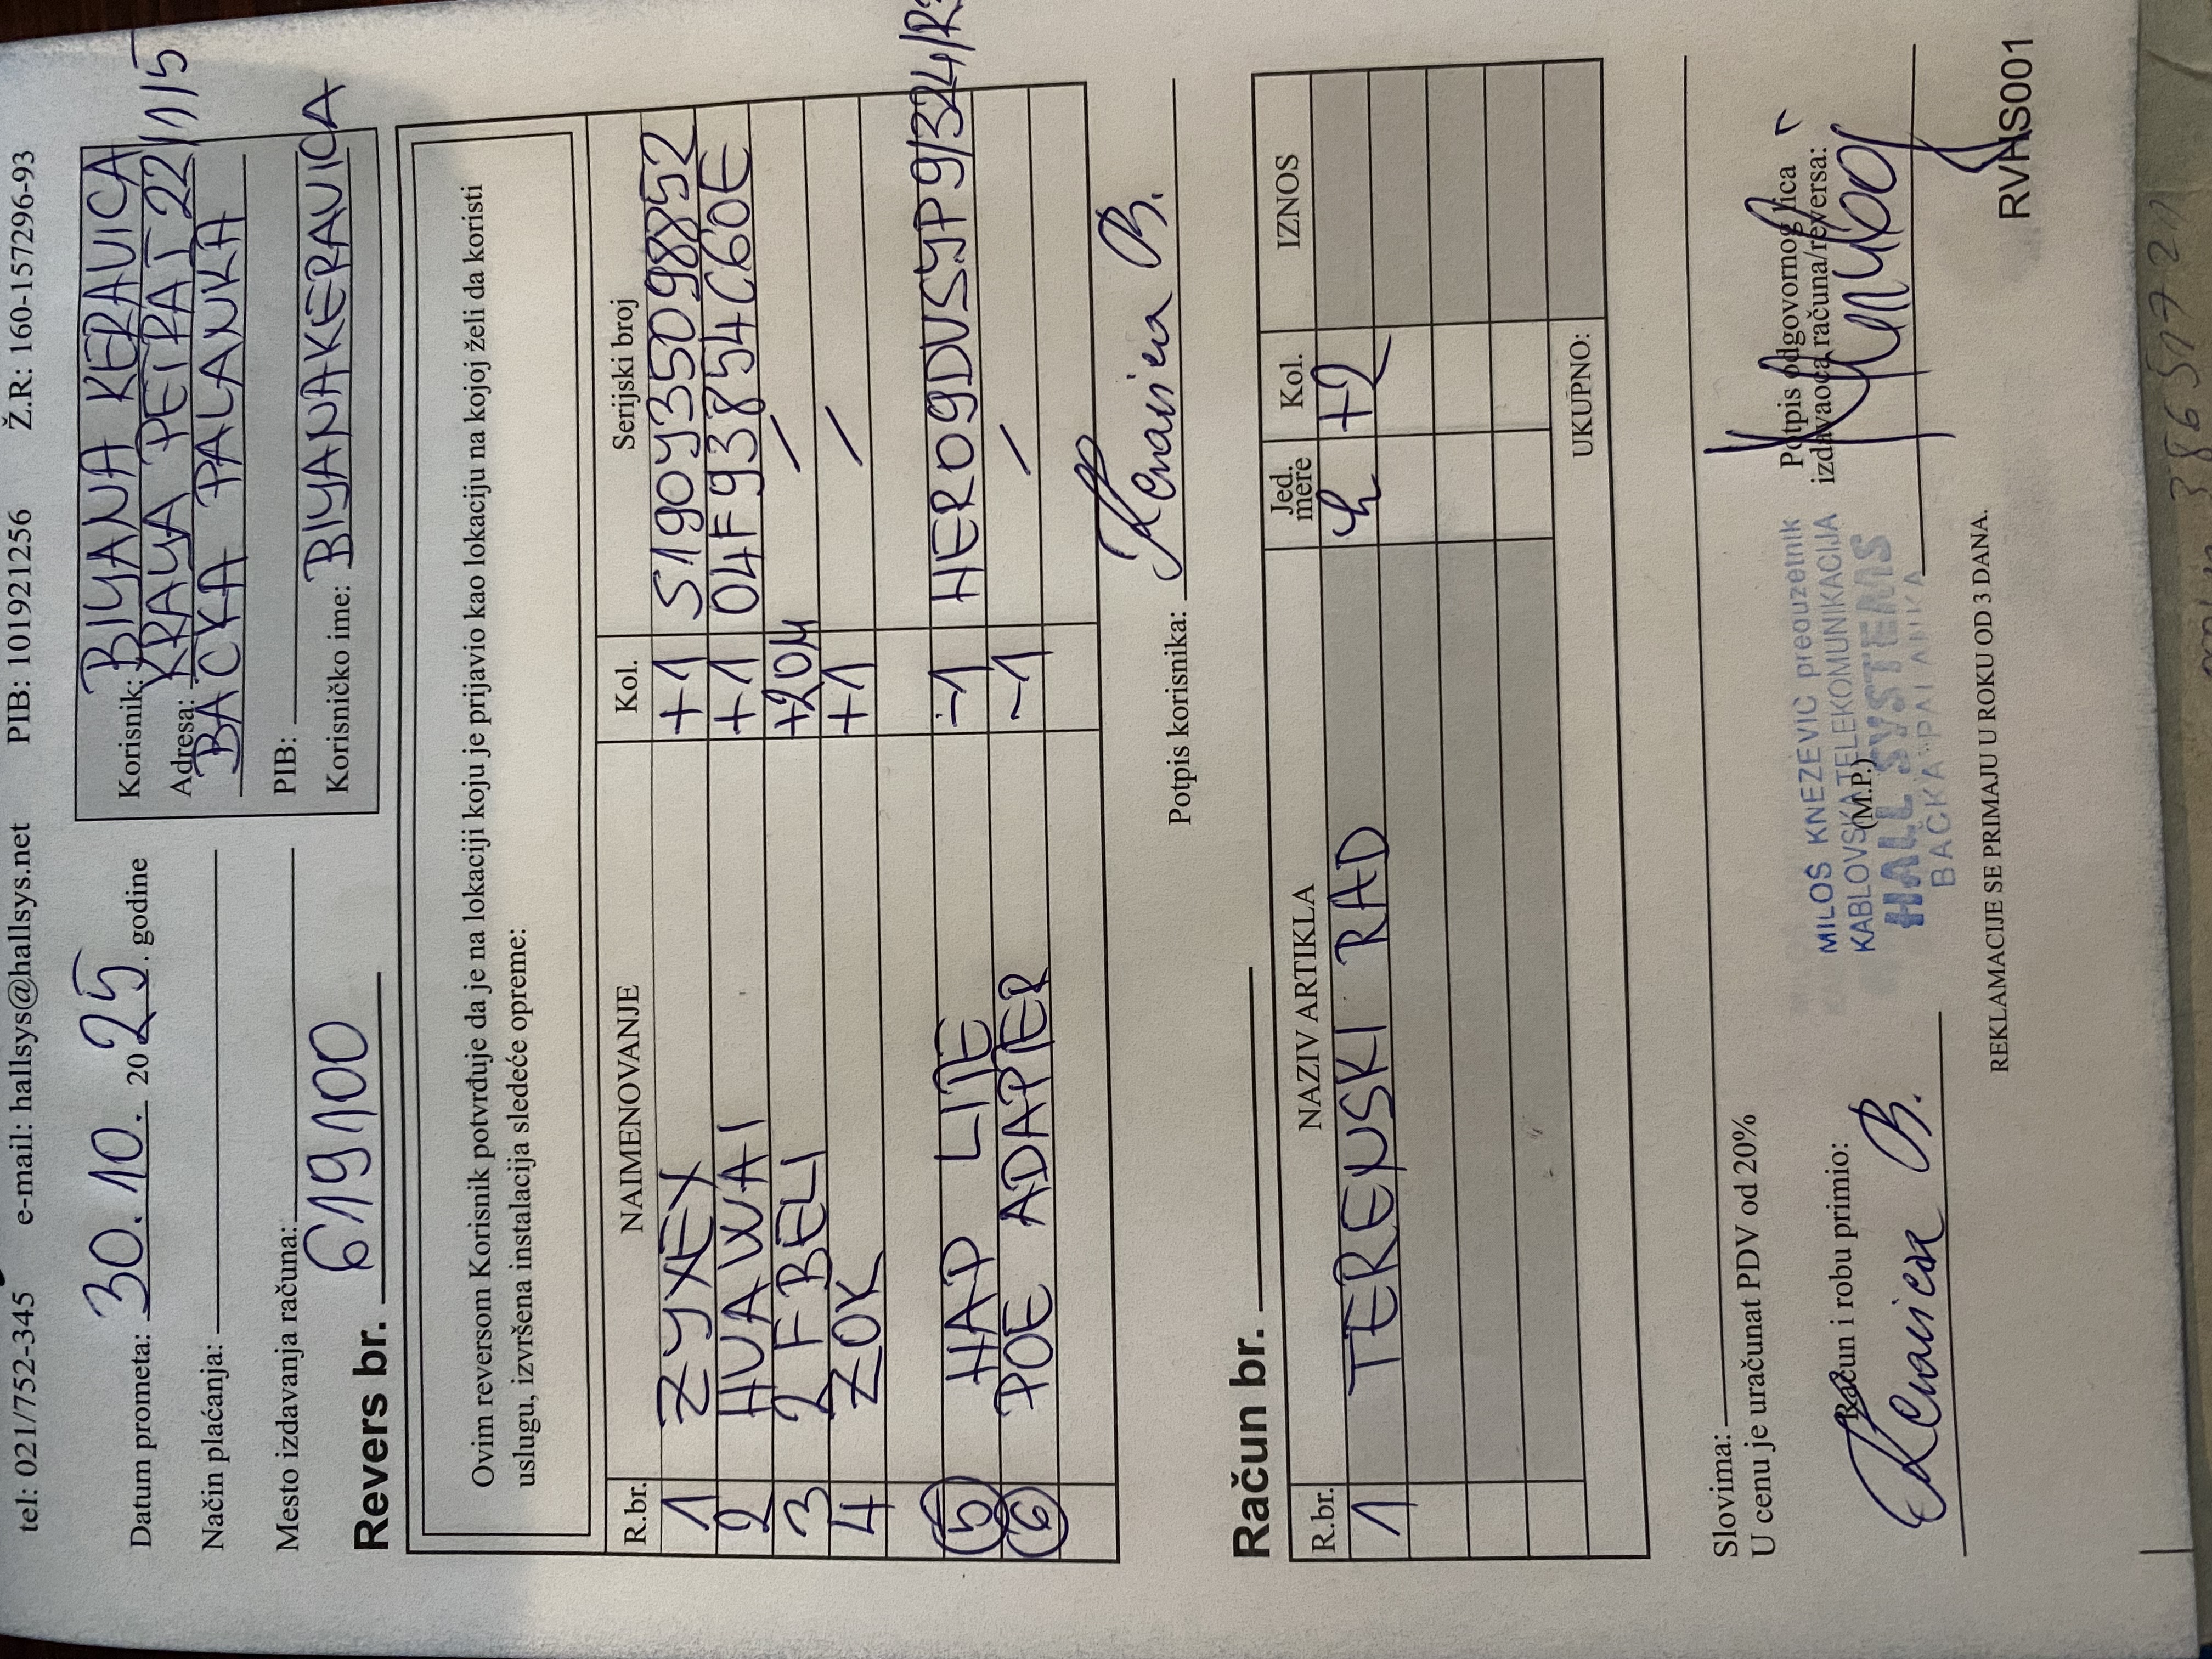 tel: 021/752-345 e-mail: hallsys@hallsys.net PIB: 101921256 Ž.R: 160-157296-93
Datum prometa: 30.10. 2025. godine
Način plaćanja:
Mesto izdavanja računa:
Korisnik: BILJANA KERAVICA
Adresa: KRALJA PETRA I 22/1/15
BACKA PALANKA
PIB:
Korisničko ime: BILJANAKERAVICA
Revers br. 619100
Ovim reversom Korisnik potvrđuje da je na lokaciji koju je prijavio kao lokaciju na kojoj želi da koristi
uslugu, izvršena instalacija sledeće opreme:
R.br. NAIMENOVANJE Kol. Serijski broj
1 ZYXEX +1 S190Y35098852
2 HUAWAI +1 04F93854C60E
3 2 F BELI +20M /
4 ZOK +1 /
5 HAP LITE -1 HER09DVSYP9/324/R
6 POE ADAPTER -1 /
Potpis korisnika: Keravica B.
Račun br.
R.br. NAZIV ARTIKLA Jed. mere Kol. IZNOS
1 TERENSKI RAD h +2
UKUPNO:
Slovima:
U cenu je uračunat PDV od 20%
Račun i robu primio:
Keravica B.
MILOŠ KNEŽEVIĆ preduzetnik
KABLOVSKA TELEKOMUNIKACIJA
(M.P.)
HALL SYSTEMS
BAČKA PALANKA
Potpis odgovornog lica
izdavaoca računa/reversa:
REKLAMACIJE SE PRIMAJU U ROKU OD 3 DANA.
RVHS001